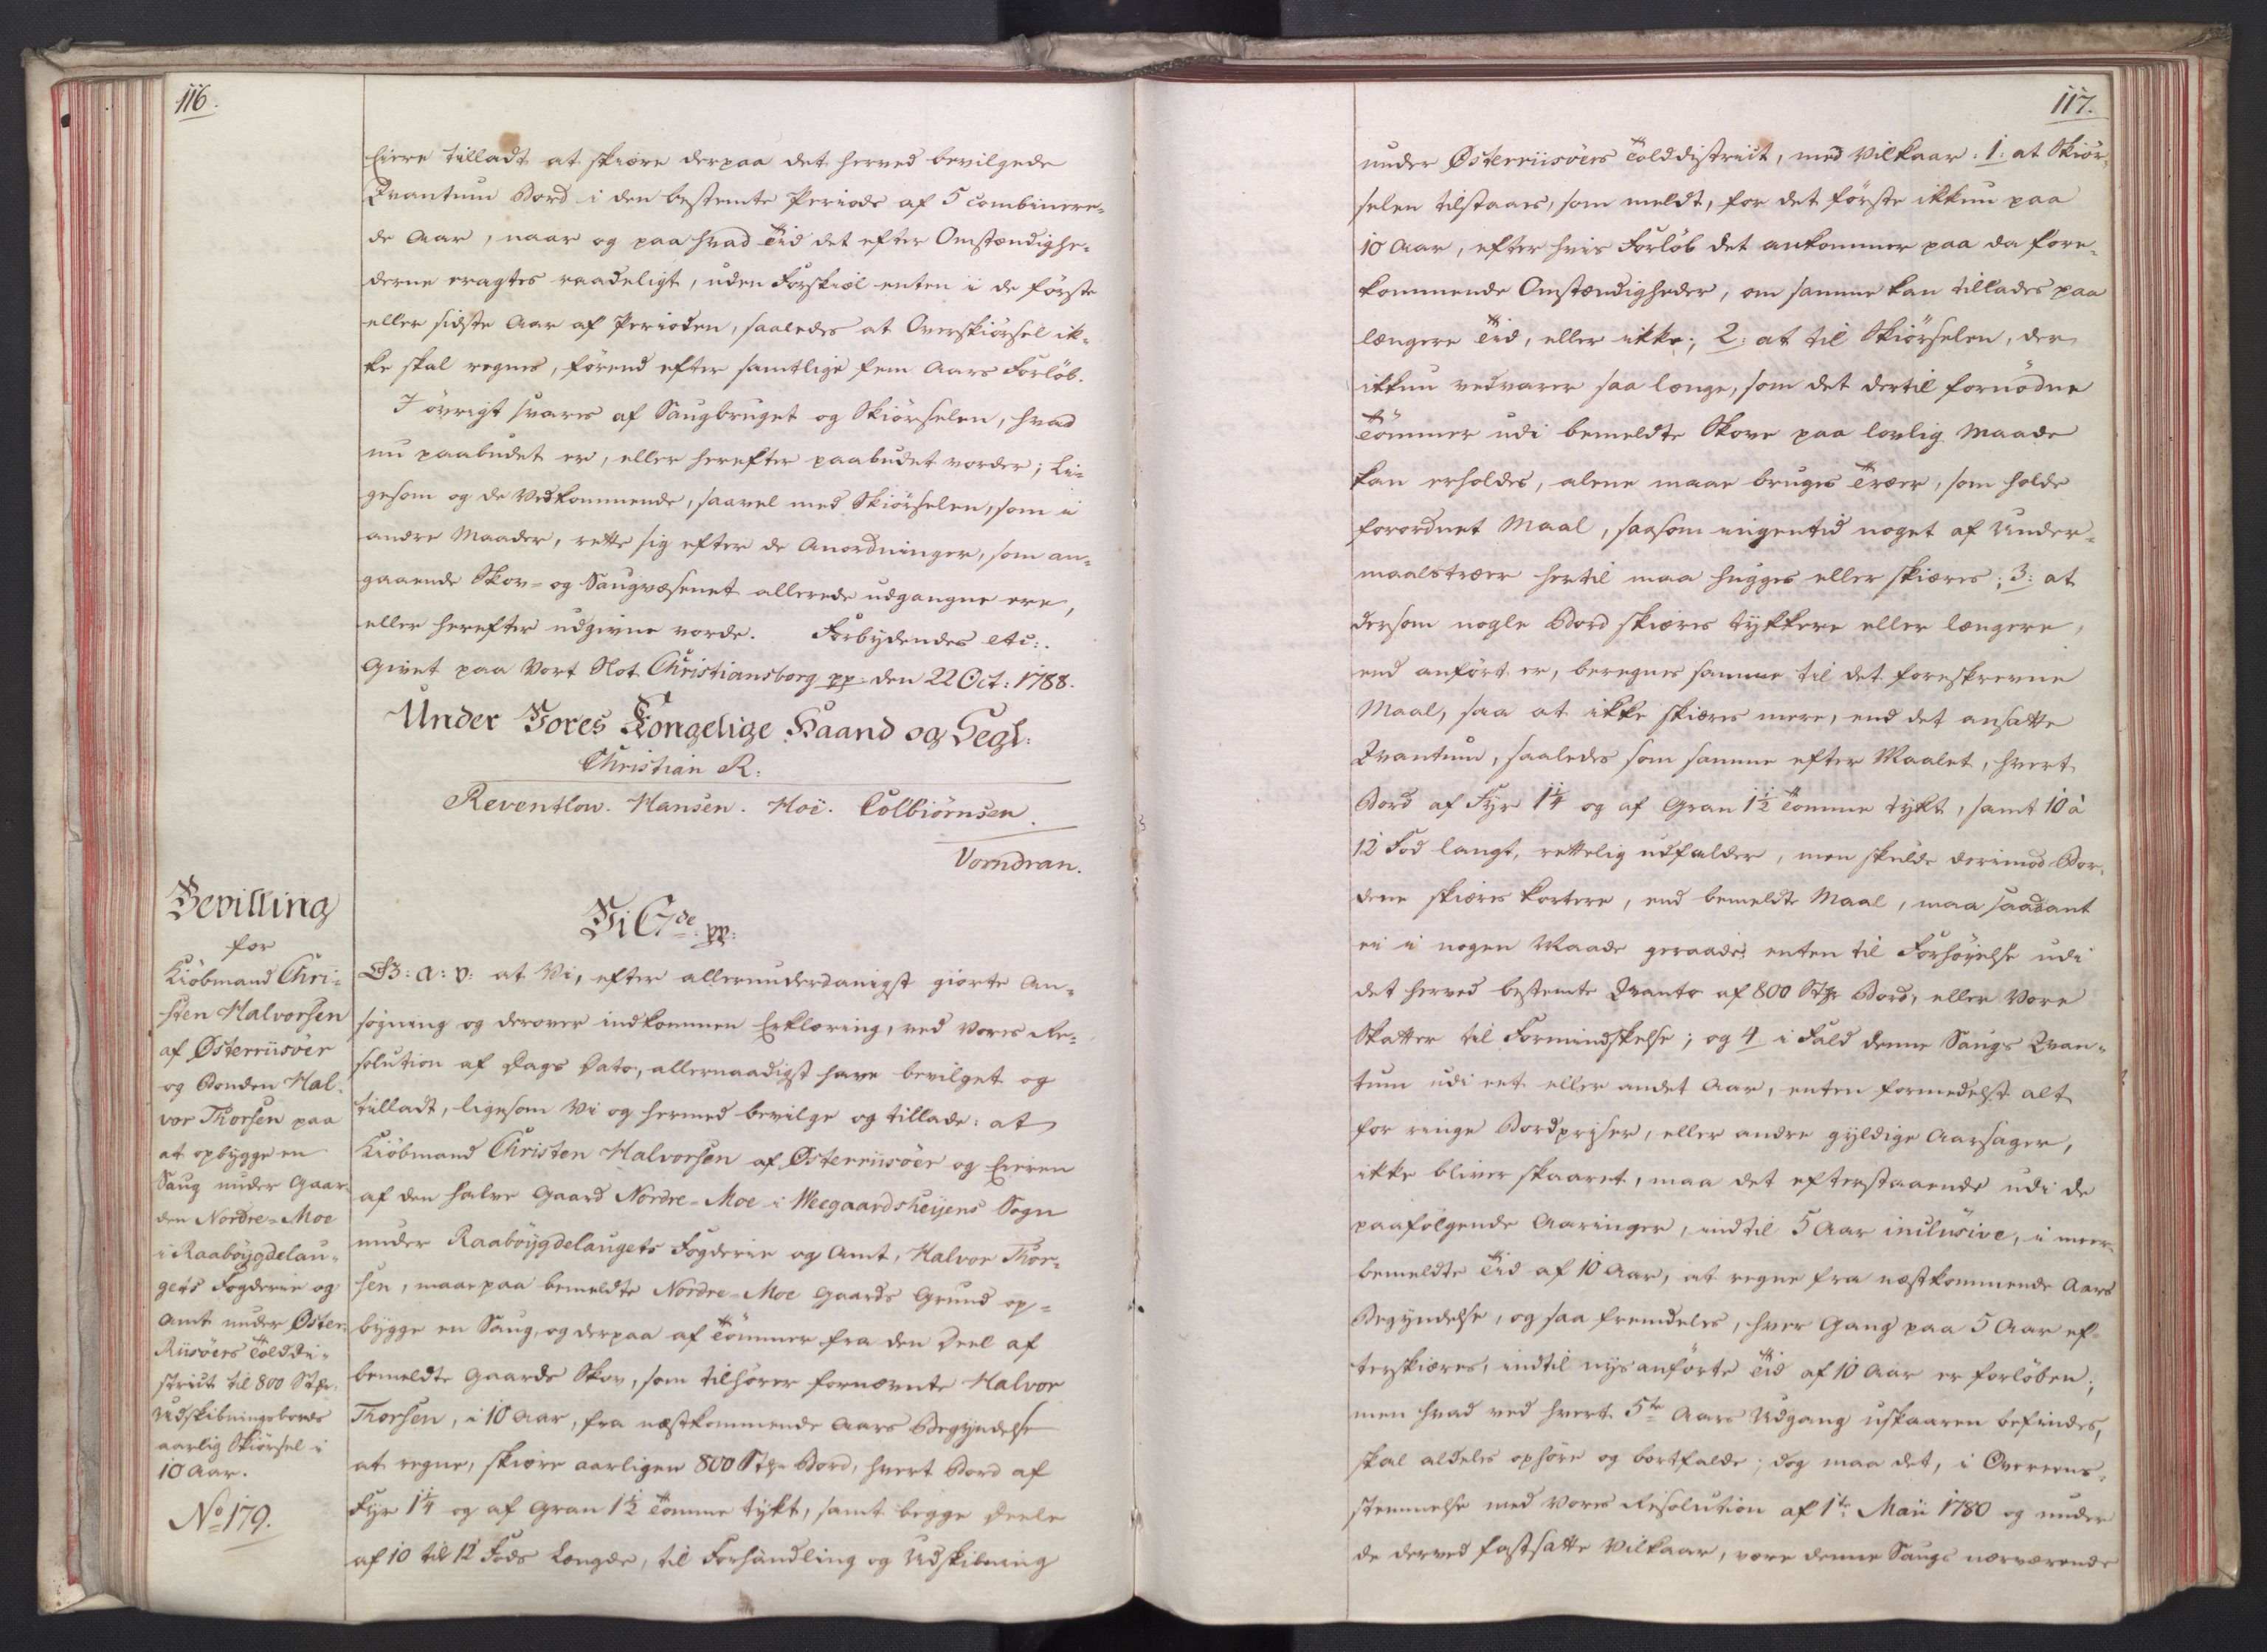 116.
Eiere tilladt at skiære derpaa det herved bevilgede
Qvantum Bord i den bestemte Periode af 5 combinere-
de Aar, naar og paa hvad Tid det efter Omstændighe-
derne eragtes raadeligt, uden Forskiæl enten i de første
eller sidste Aar af Perioden, saaledes at Overskiørsel ik-
ke skal regnes, førend efter samtlige fem Aars Forløb.
I øvrigt svares af Saugbruget og Skiørselen, hvad
nu paabudet er, eller herefter paabudet vorder; Li-
gesom og de Vedkommende, saavel med Skiørselen, som i
andre Maader, rette sig efter de Anordninger, som an-
gaaende Skov- og Saugvæsenet allerede udgangne ere,
eller herefter udgivne vorde. Forbydendes etc:.
Givet paa Vort Slot Christiansborg pp: den 22 Oct: 1788.
Under Vores Kongelige Haand og Segl:
Christian R:
Reventlow. Hansen. Hoë. Colbiørnsen.
Vorndran.
Bevilling
for
Kiøbmand Chri-
sten Halvorsen
af Østerriisöer
og Bonden Hal-
vor Thorsen paa
at opbygge en
Saug under Gaar-
den Nordre-Moe
i Raaböygdelau-
gets Fogderie og
Amt under Øster-
Riisöers Tolddi-
strict til 800 Stkr.
Udskibningsbords
aarlig Skiørsel i
10 Aar.
No 179.
Vi C 7de pp:
G: A: V: at Vi, efter allerunderdanigst giorte An-
søgning og derover indkommen Erklæring, ved Vores Re-
solution af Dags Dato, allernaadigst have bevilget og
tilladt, ligesom Vi og hermed bevilge og tillade: at
Kiøbmand Christen Halvorsen af Østerriisöer og Eieren
af den halve Gaard Nordre-Moe i Weegaardsheyens Sogn
under Raaböygdelaugets Fogderie og Amt, Halvor Thor-
sen, maae paa bemeldte Nordre-Moe Gaards Grund op-
bygge en Saug, og derpaa af Tømmer fra den Deel af
bemeldte Gaards Skov, som tilhører fornævnte Halvor
Thorsen, i 10 Aar, fra næstkommende Aars Begyndelse
at regne, skiære aarligen 800 Stkr Bord, hvert Bord af
Fyr 1 1/4 og af Gran 1 1/2 Tomme tykt, samt begge Deele
af 10 til 12 Fods Længde, til Forhandling og Udskibning
117.
under Østerriisöers Tolddistrict, med Vilkaar: 1: at Skiør-
selen tilstaaes, som meldt, for det første ikkun paa
10 Aar, efter hvis Forløb det ankommer paa da fore-
kommende Omstændigheder, om samme kan tillades paa
længere Tid, eller ikke; 2: at til Skiørselen, der
ikkun vedvarer saa længe, som det dertil fornødne
Tømmer udi bemeldte Skove paa lovlig Maade
kan erholdes, alene maae bruges Træer, som holde
forordnet Maal, saasom ingentid noget af Under-
maalstræer hertil maa hugges eller skiæres; 3: at
dersom nogle Bord skiæres tykkere eller længere,
end anført er, beregnes samme til det foreskrevne
Maal, saa at ikke skiæres mere, end det ansatte
Qvantum, saaledes som samme efter Maalet, hvert
Bord af Fyr 1 1/4 og af Gran 1 1/2 Tomme tykt, samt 10 à
12 Fod langt, rettelig udfalder, men skulde derimod Bor-
dene skiæres kortere, end bemeldte Maal, maa saadant
ei i nogen Maade geraade enten til Forhøyelse udi
det herved bestemte Qvanto af 800 Stkr Bord, eller Vore
Skatter til Formindskelse; og 4. i Fald denne Saugs Qvan-
tum udi eet eller andet Aar, enten formedelst alt
for ringe Bordpriser, eller andre gyldige Aarsager,
ikke bliver skaaret, maa det efterstaaende udi de
paafølgende Aaringer, indtil 5 Aar inclusive, i meer-
bemeldte Tid af 10 Aar, at regne fra næstkommende Aars
Begyndelse, og saa fremdeles, hver Gang paa 5 Aar ef-
terskiæres, indtil nysanførte Tid af 10 Aar er forløben;
men hvad ved hvert 5te Aars Udgang uskaaren befindes,
skal aldeles ophøre og bortfalde; dog maa det, i Overeens-
stemmelse med Vores Resolution af 1te Maii 1780 og under
de derved fastsatte Vilkaar, være denne Saugs nærværende